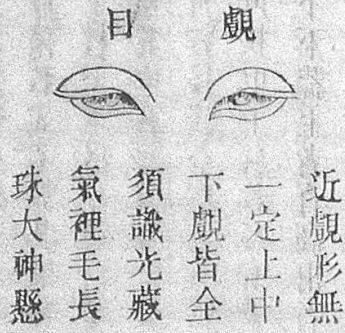 覷目
近覷形無
一定上中
下覷皆全
須識光藏
氣裡毛長
珠大神懸